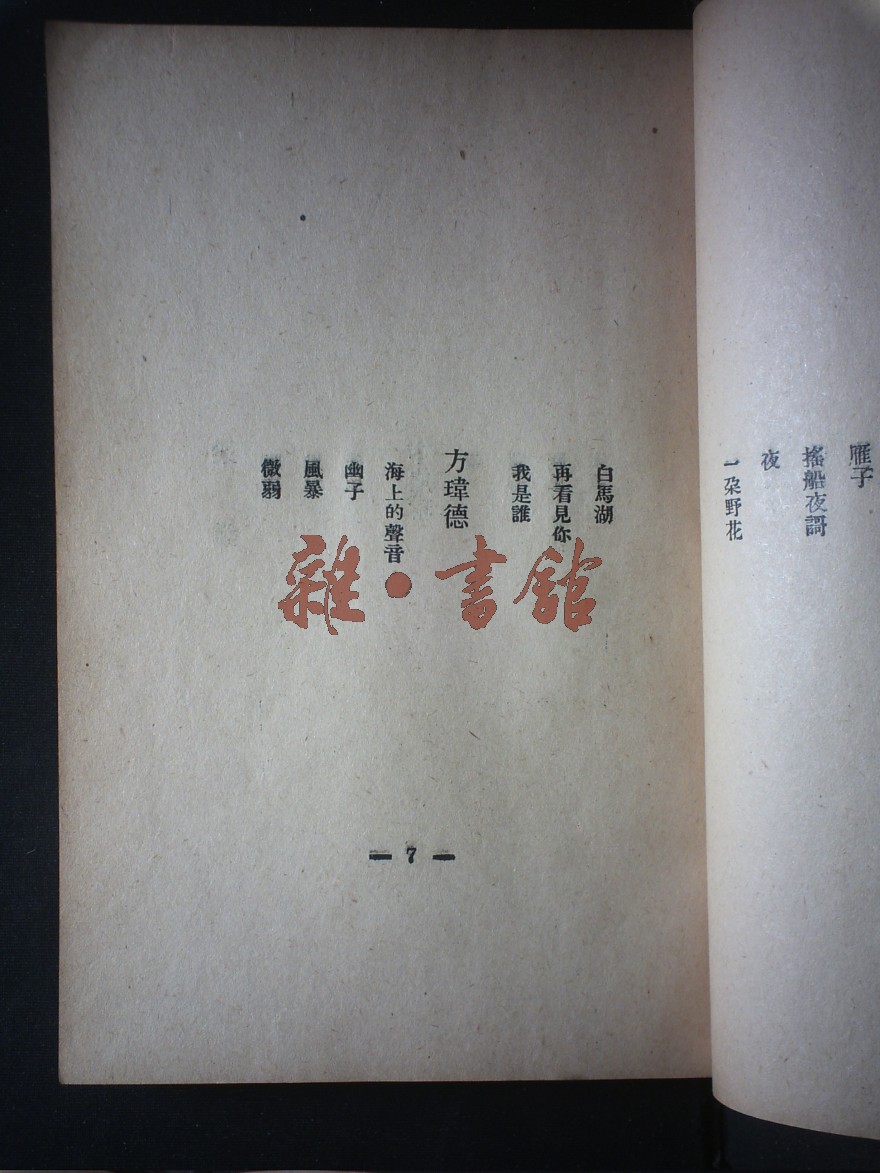 雁子
搖船夜謌
夜
一朶野花
白馬湖
再看見你
我是誰
方瑋德
海上的聲音
幽子
風暴
微弱
雜·書館
— 7 —